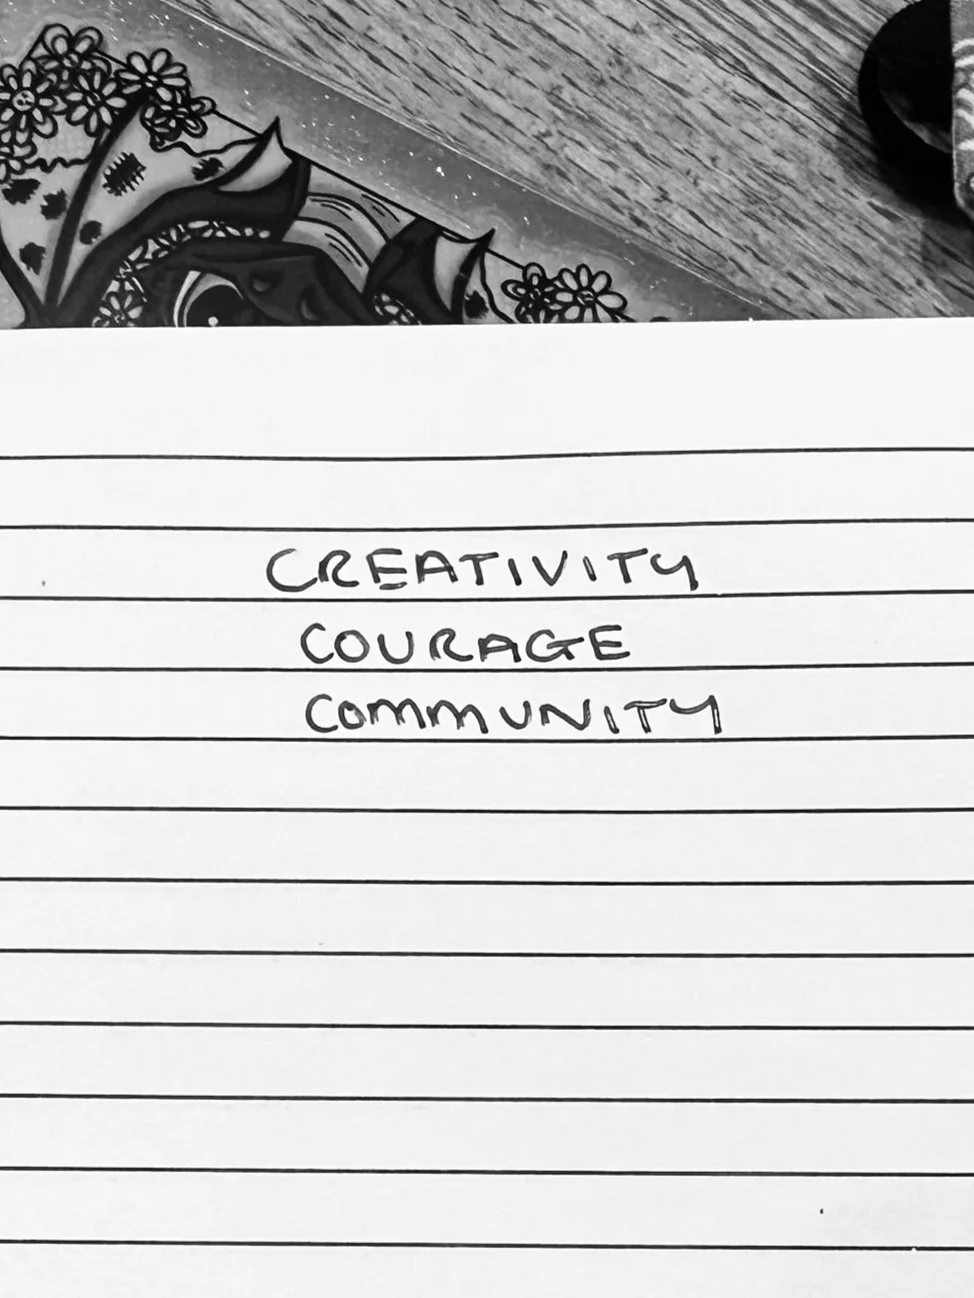 CREATIVITY
COURAGE
COMMUNITY